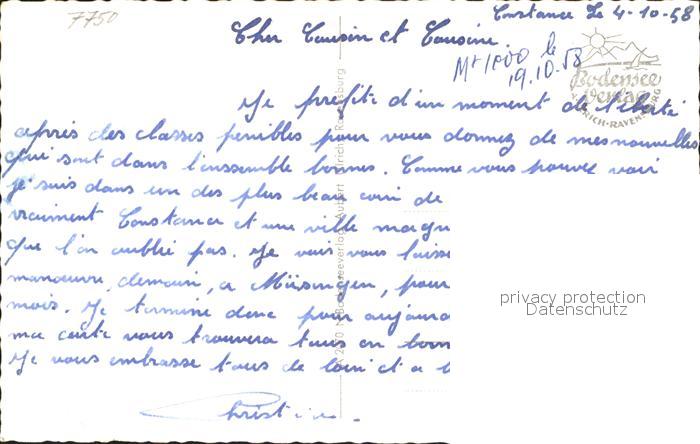 7750
Constance le 4-10-58
Cher Cousin et Cousine.
Mt 1000 le
19.10.58
Bodensee
Verlag
Je profite d'un moment de liberté
après des classes penibles pour vous donnez de mes nouvelles
qui sont dans l'enssemble bonnes. Comme vous pouvez voir
je suis dans un des plus beau coin de
vraiment Constance et une ville magn
que l'on oublie pas. Je vais vous laisse
manœuvre, demain, a Münsingen, pour
mois. Je termine donc pour aujourd
ma carte vous trouvera tous en bonn
Je vous embrasse tous de loin et a b
privacy protection
Datenschutz